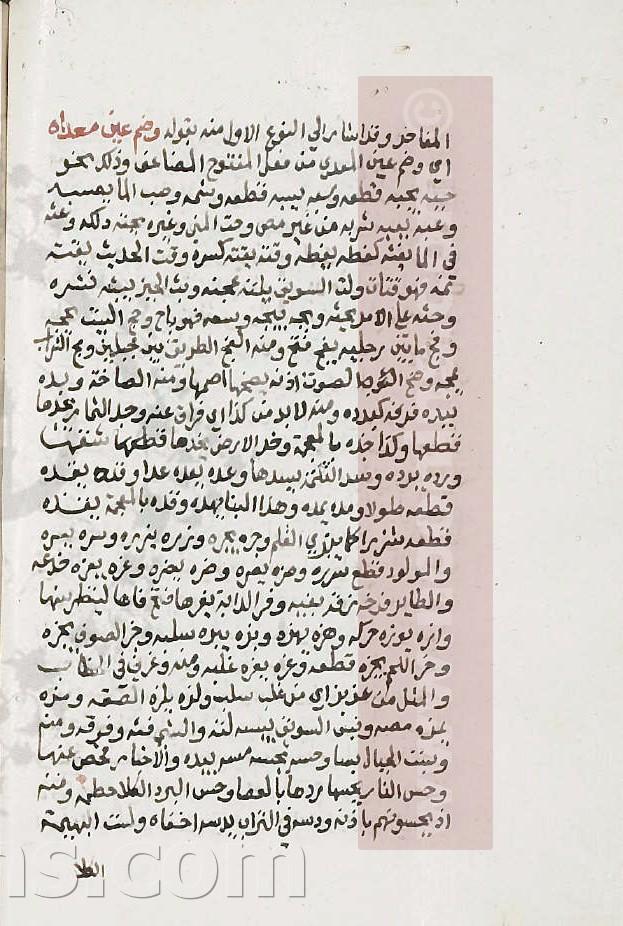 المفاخر وقد اشار الي النوع الاول منه بقوله وضم عين معداه
اي وضم عين المعدي من فعل المفتوح المضاعف وذلك نحو
جبه يجبه قطعه وسبه يسبه قطعه وشتمه وصب الما يصبه
وعبه يعبه شربه من غير مص وحت المني وغيره يحته دلكه وغته
في الما يغته كغطه يغطه وفته يفته كسره وقت الحديث يقته
نمه فهو قتات ولت السويق يلته عجنه وبث الخبر يبثه نشره
وحثه علي الامر يحثه وبجه يبجه وسعه فهو باج وحج البيت يحجه
وفج ما بين رجليه يفج فتح ومنه الفج الطريق بين جبلين ومج الشراب
يمجه وصخ الصوت اذنه يصخها اصمها ومنه الصاخة وبده
يبده فرقه كبدده ومنه لا بد من كذا اي فراق عنه وجد الثمار يجدها
قطعها وكذا جذه بالمعجمة وخد الارض يخدها قطعها شقها
ورده يرده وسد الثلمة يسدها وعده يعده عدا وقده يقده
قطعه طولا ومده يمده وهد البنا يهده وقذه بالمعجمة يقذه
قطعه كما يبري القلم وجره يجره وزره يزره وسره يسره
والمولود قطع سرره وصره يصره وضره يضره وغره يغره خدعه
والطاير فرخه زقه بفيه وفر الدابة يفرها فتح فاها لينظر سنها
وازه يوزه حركه وهزه يهزه وبزه يبزه سلبه وجز الصوف يجزه
وحز اللحم يحزه قطعه وعزه يعزه غلبه ومنه وعزني في الخطاب
والمثل من عز بز اي من غلب سلب ولزه يلزه الصقه ومزه
يمزه مصه وبس السويق يبسه لته والشي فته وفرقه ومنه
وبست الجبال بسا وجسه يجسه مسه بيده والاخبار فحص عنها
وحس النار يحسها ردها بالعصا وحس البرد الكلا حطمه ومنه
اذ تحسونهم باذنه ودسه في التراب يدسه اخفاه ولست البهيمة
الكلا
ns.com